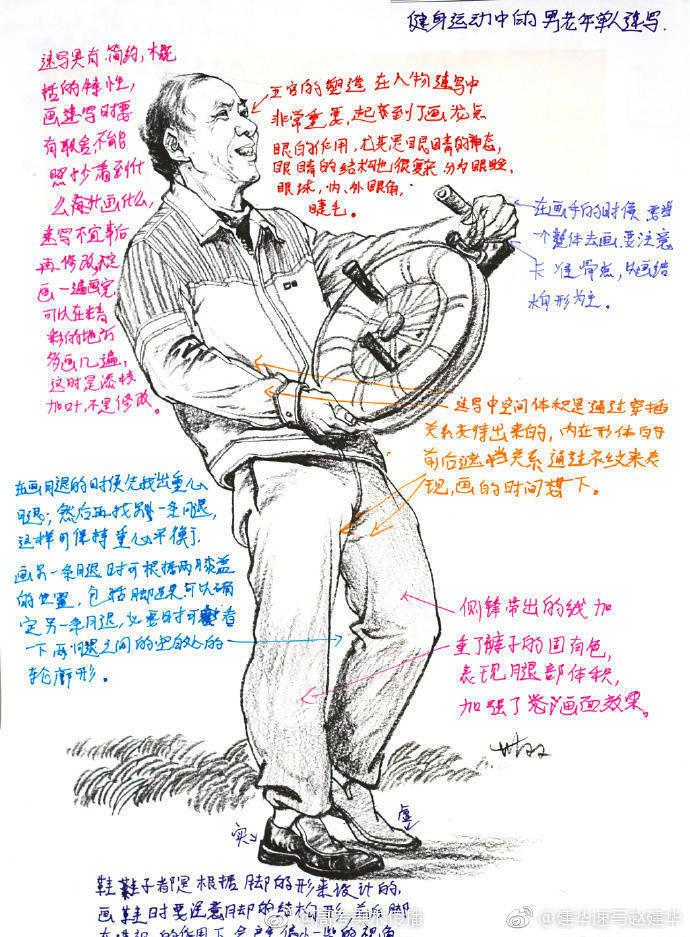 健身运动中的男老年单人速写.
速写具有简约,概
括的特性,
画速写时要
有取舍不能
照抄看到什
么画什么,
速写不宜事后
再修改,
画一遍画完
可以在精
彩的地方
多画几遍,
这时是添枝
加叶,不是修改。
五官的塑造在人物速写中
非常重要,起着到了画龙点
眼的作用,尤其是眼睛的神态,
眼睛的结构也很复杂分为眼睑,
眼球,内、外眼角,
睫毛。
在画手的时候 需当
个整体去画,要注意
卡准骨点,以画结
构形为主。
速写中空间体积是通过穿插
关系支持出来的,内在形体的
前后遮挡关系通过衣纹来表
现,画的时间 下。
在画腿的时候先找出重心
腿;然后再找另一条腿,
这样可保持重心平衡了.
画另一条腿时可根据两膝盖
的位置,包括脚进来可以确
定另一条腿,必要时可看
下两腿之间的空白处的
轮廓形。
侧锋带出的线加
重了裤子的固有色,
表现腿部体积,
加强了画面效果。
实
虚
鞋子都是根据脚的形来设计的,
画鞋时要注意脚的结构形,
的作用下会产生
@高考美术传播
@建华速写赵建华